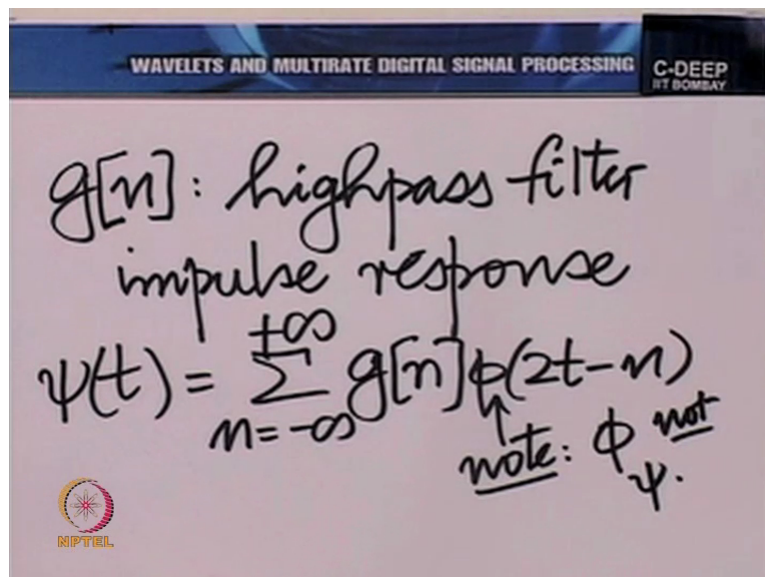 WAVELETS AND MULTIRATE DIGITAL SIGNAL PROCESSING
C-DEEP
IIT BOMBAY
g[n]: highpass filter
impulse response
+∞
ψ(t) = Σ g[n] ϕ(2t-n)
n=-∞
note: ϕ not
ψ.
NPTEL